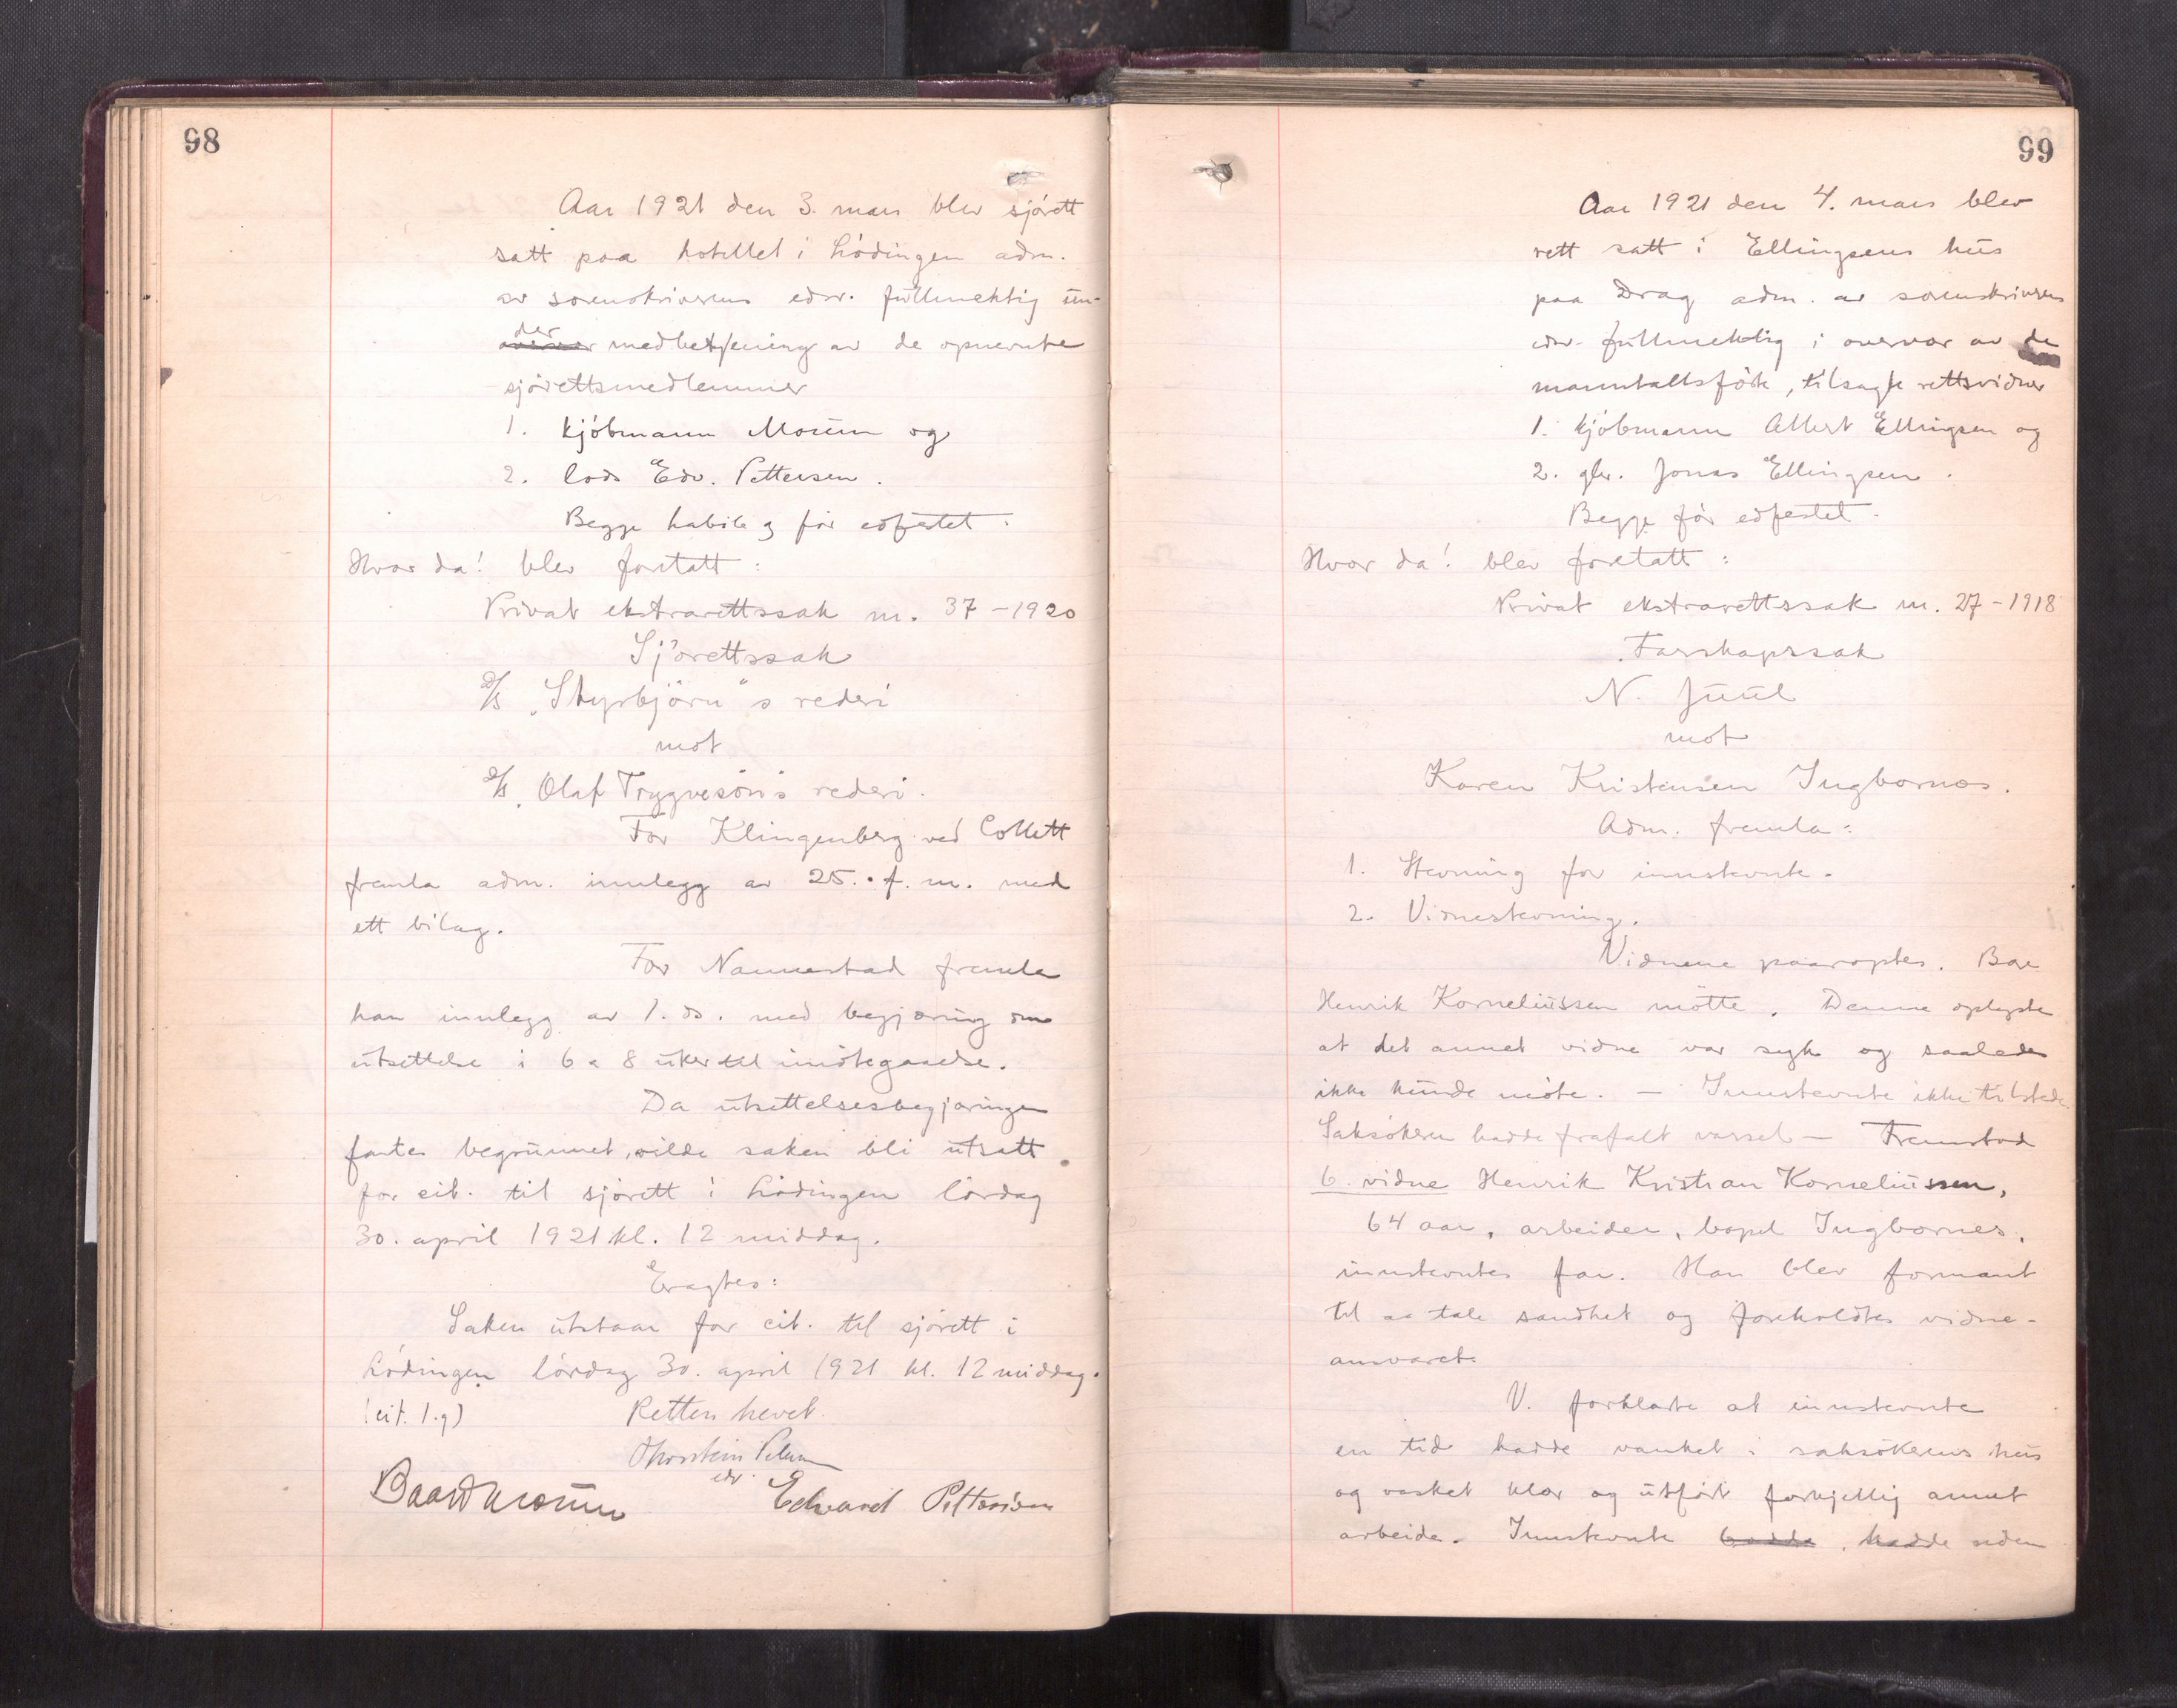 98
Aar 1921 den 3. mars blev sjörett
satt paa hotellet i Lödingen adm.
av sorenskriverens edsv. fullmektig un-
der
medbetjening av de opnevnte
sjörettsmedlemmer
1. kjöbmann Morün og
2. lods Edv. Pettersen.
Begge habile og för edfestet.
Hvor da! blev foretatt:
Privat ekstrarettssak nr. 37-1920
Sjörettssak
D/S „Styrbjörn"s rederi
mot
D/S „Olaf Trygvesön"s rederi.
For Klingenberg ved Collett
fremla adm. innlegg av 25. f. m. med
ett bilag.
For Nannestad fremla
han innlegg av 1. ds. med begjæring om
utsettelse i 6 a 8 uker til imötegaaelse.
Da utsettelsesbegjæringen
fantes begrunnet, vilde saken bli utsatt
for eib. til sjörett i Lödingen lördag
30. april 1921 kl. 12 middag.
Eragtes:
Saken utstaar for eib. til sjörett i
Lödingen lördag 30. april 1921 kl. 12 middag.
(eit. 1.g) Retten hevet.
Thorstein
edsv.
Baard Morün Edvard Pettersen
99
Aar 1921 den 4. mars blev
rett satt i Ellingsens hus
paa Drag adm. av sorenskriverens
edsv. fullmektig i overvær av de
manntallsförte, tilsagte rettsvidner
1. kjöbmann Albert Ellingsen og
2. gbr. Jonas Ellingsen.
Begge för edfestet.
Hvor da! blev foretatt:
Privat ekstrarettssak nr. 27-1918
Farskapssak
N. Juul
mot
Karen Kristensen Ingbornæs.
Adm. fremla:
1. Stevning for innstevnte.
2. Vidnestevning.
Vidnene paaroptes. Bare
Henrik Korneliussen mötte. Denne oplyste
at det annet vidne var syk og saaledes
ikke kunde möte. — Innstevnte ikke tilstede.
Saksökeren hadde frafalt varsel — Fremstod
6. vidne Henrik Kristian Korneliussen,
64 aar, arbeider, bopel Ingbornes,
innstevntes far. Han blev formant
til aa tale sandhet og foreholdtes vidne-
ansvaret.
V. forklarte at innstevnte
en tid hadde vanket i saksökerens hus
og vasket klær og utfört forskjellig annet
arbeide. Innstevnte hadde, hadde siden